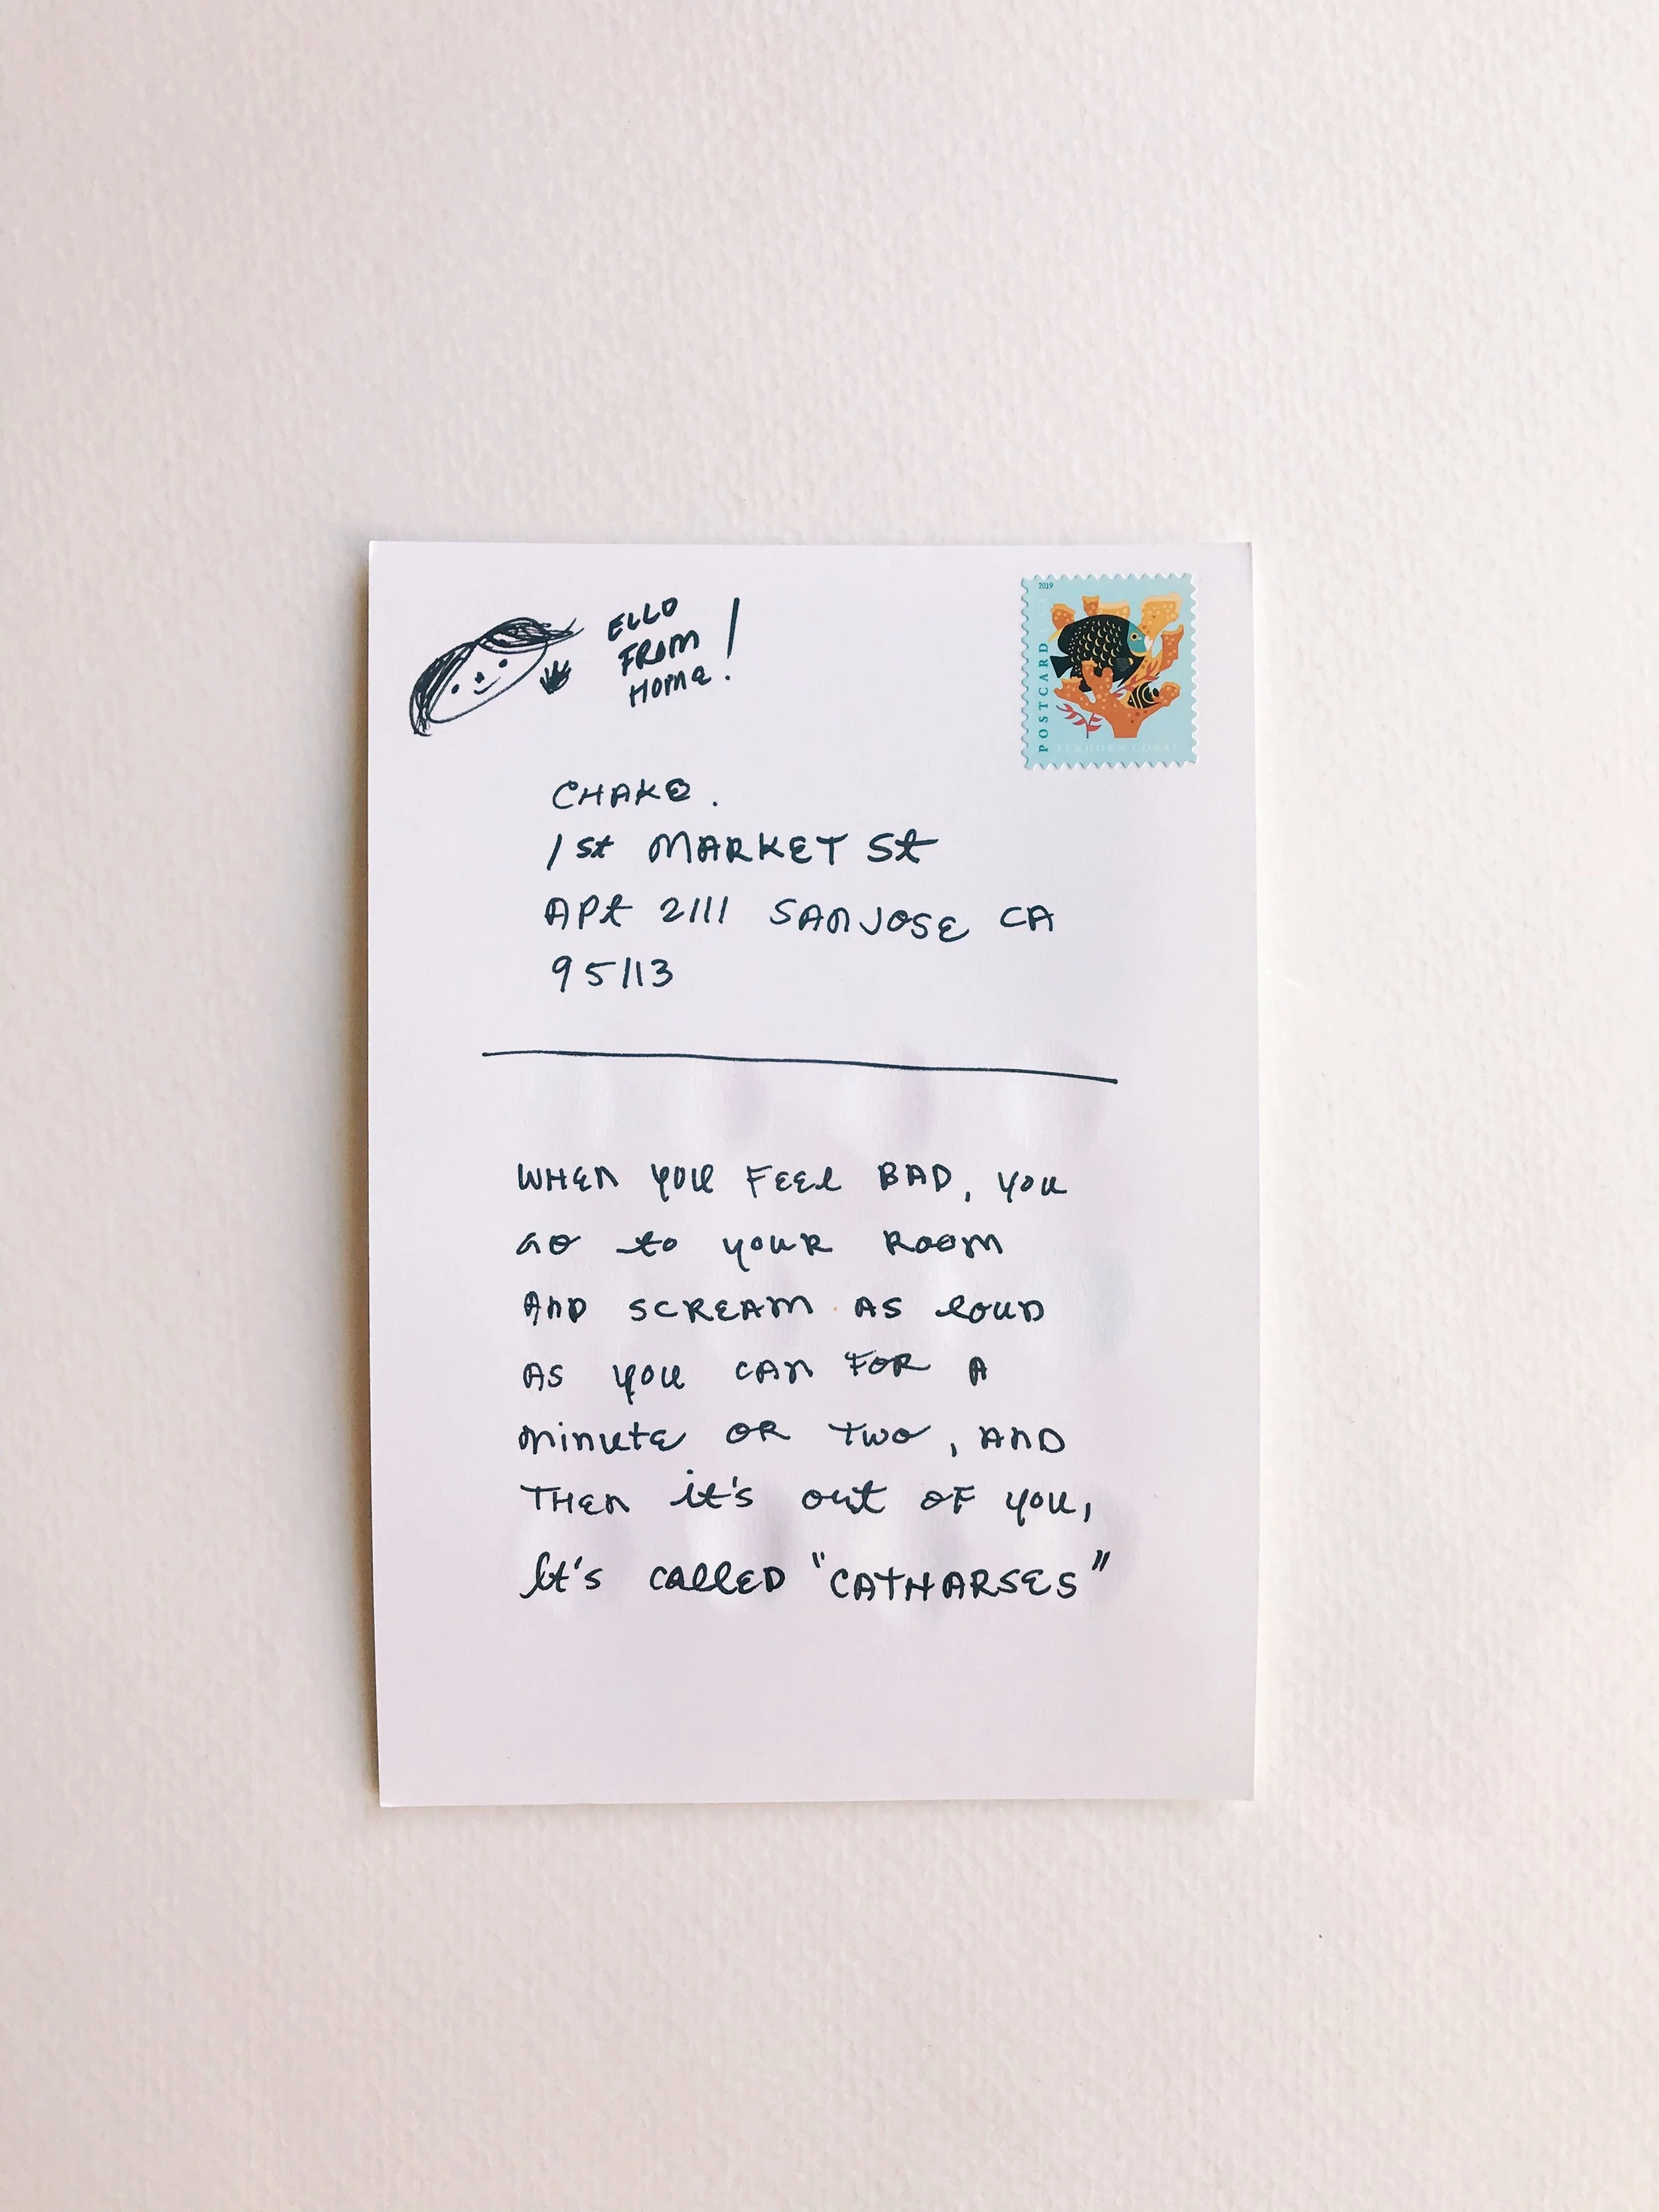 ELLO
FROM
HOME!
2019
POSTCARD
ELKHORN CORAL
CHAKO.
1st MARKET St
APt 2111 SANJOSE CA
95113
WHEN YOU FEEL BAD, YOU
GO to YOUR ROOM
AND SCREAM AS LOUD
AS YOU CAN FOR A
minute OR TWO, AND
THEN it's out OF YOU,
It's CALLED "CATHARSES"